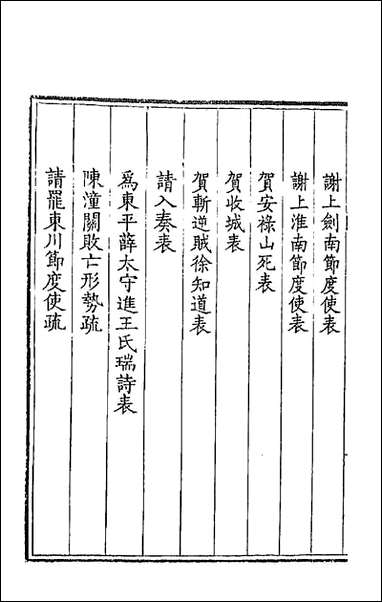 謝上劍南節度使表
謝上淮南節度使表
賀安祿山死表
賀收城表
賀斬逆賊徐知道表
請入奏表
爲東平薛太守進王氏瑞詩表
陳潼關敗亡形勢疏
請罷東川節度使疏